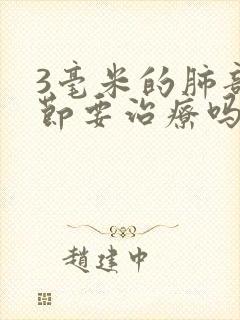 3毫米的肺部
节要治療吗
趙建中